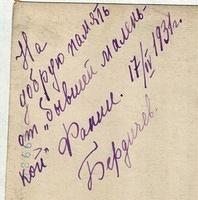 На
добрую память
от "бывшей малень-
кой" Фани. 17/IV 1931г.
Бердичев.